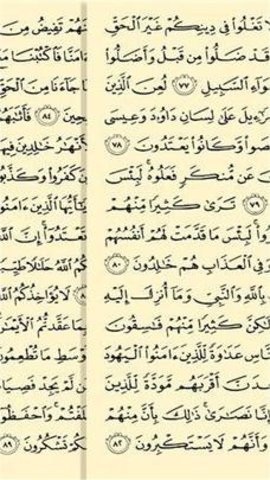 لَا تَغْلُوا۟ فِى دِينِكُمْ غَيْرَ ٱلْحَقِّ
قَدْ ضَلُّوا۟ مِن قَبْلُ وَأَضَلُّوا۟
وَآءِ ٱلسَّبِيلِ ٧٧ لُعِنَ ٱلَّذِينَ
رَٰٓءِيلَ عَلَىٰ لِسَانِ دَاوُۥدَ وَعِيسَى
صَوا۟ وَّكَانُوا۟ يَعْتَدُونَ ٧٨
نَ عَن مُّنكَرٍ فَعَلُوهُ ۚ لَبِئْسَ
٧٩ تَرَىٰ كَثِيرًا مِّنْهُمْ
وا۟ ۚ لَبِئْسَ مَا قَدَّمَتْ لَهُمْ أَنفُسُهُمْ
وَفِى ٱلْعَذَابِ هُمْ خَٰلِدُونَ ٨٠
بِٱللَّهِ وَٱلنَّبِىِّ وَمَآ أُنزِلَ إِلَيْهِ
لَٰكِنَّ كَثِيرًا مِّنْهُمْ فَٰسِقُونَ
نَّاسِ عَدَٰوَةً لِّلَّذِينَ ءَامَنُوا۟ ٱلْيَهُودَ
دَنَّ أَقْرَبَهُم مَّوَدَّةً لِّلَّذِينَ
إِنَّا نَصَٰرَىٰ ۚ ذَٰلِكَ بِأَنَّ مِنْهُمْ
وَأَنَّهُمْ لَا يَسْتَكْبِرُونَ ٨٢
نَهُمْ تَفِيضُ مِنَ
ءَامَنَّا فَٱكْتُبْنَا مَ
مَا جَآءَنَا مِنَ ٱلْحَقِّ
حِينَ ٨٤ فَأَثَٰبَهُمُ
أَنْهَٰرُ خَٰلِدِينَ فِيهَا
نَ كَفَرُوا۟ وَكَذَّبُوا۟
يَٰٓأَيُّهَا ٱلَّذِينَ ءَامَنُوا۟
تَعْتَدُوٓا۟ ۚ إِنَّ ٱللَّهَ
كُمُ ٱللَّهُ حَلَٰلًا طَيِّبًا
لَا يُؤَاخِذُكُمُ ٱللَّهُ
مَا عَقَّدتُّمُ ٱلْأَيْمَٰنَ
وْسَطِ مَا تُطْعِمُونَ
ن لَّمْ يَجِدْ فَصِيَامُ
لَفْتُمْ ۚ وَٱحْفَظُوٓا۟
كُمْ تَشْكُرُونَ ٨٩